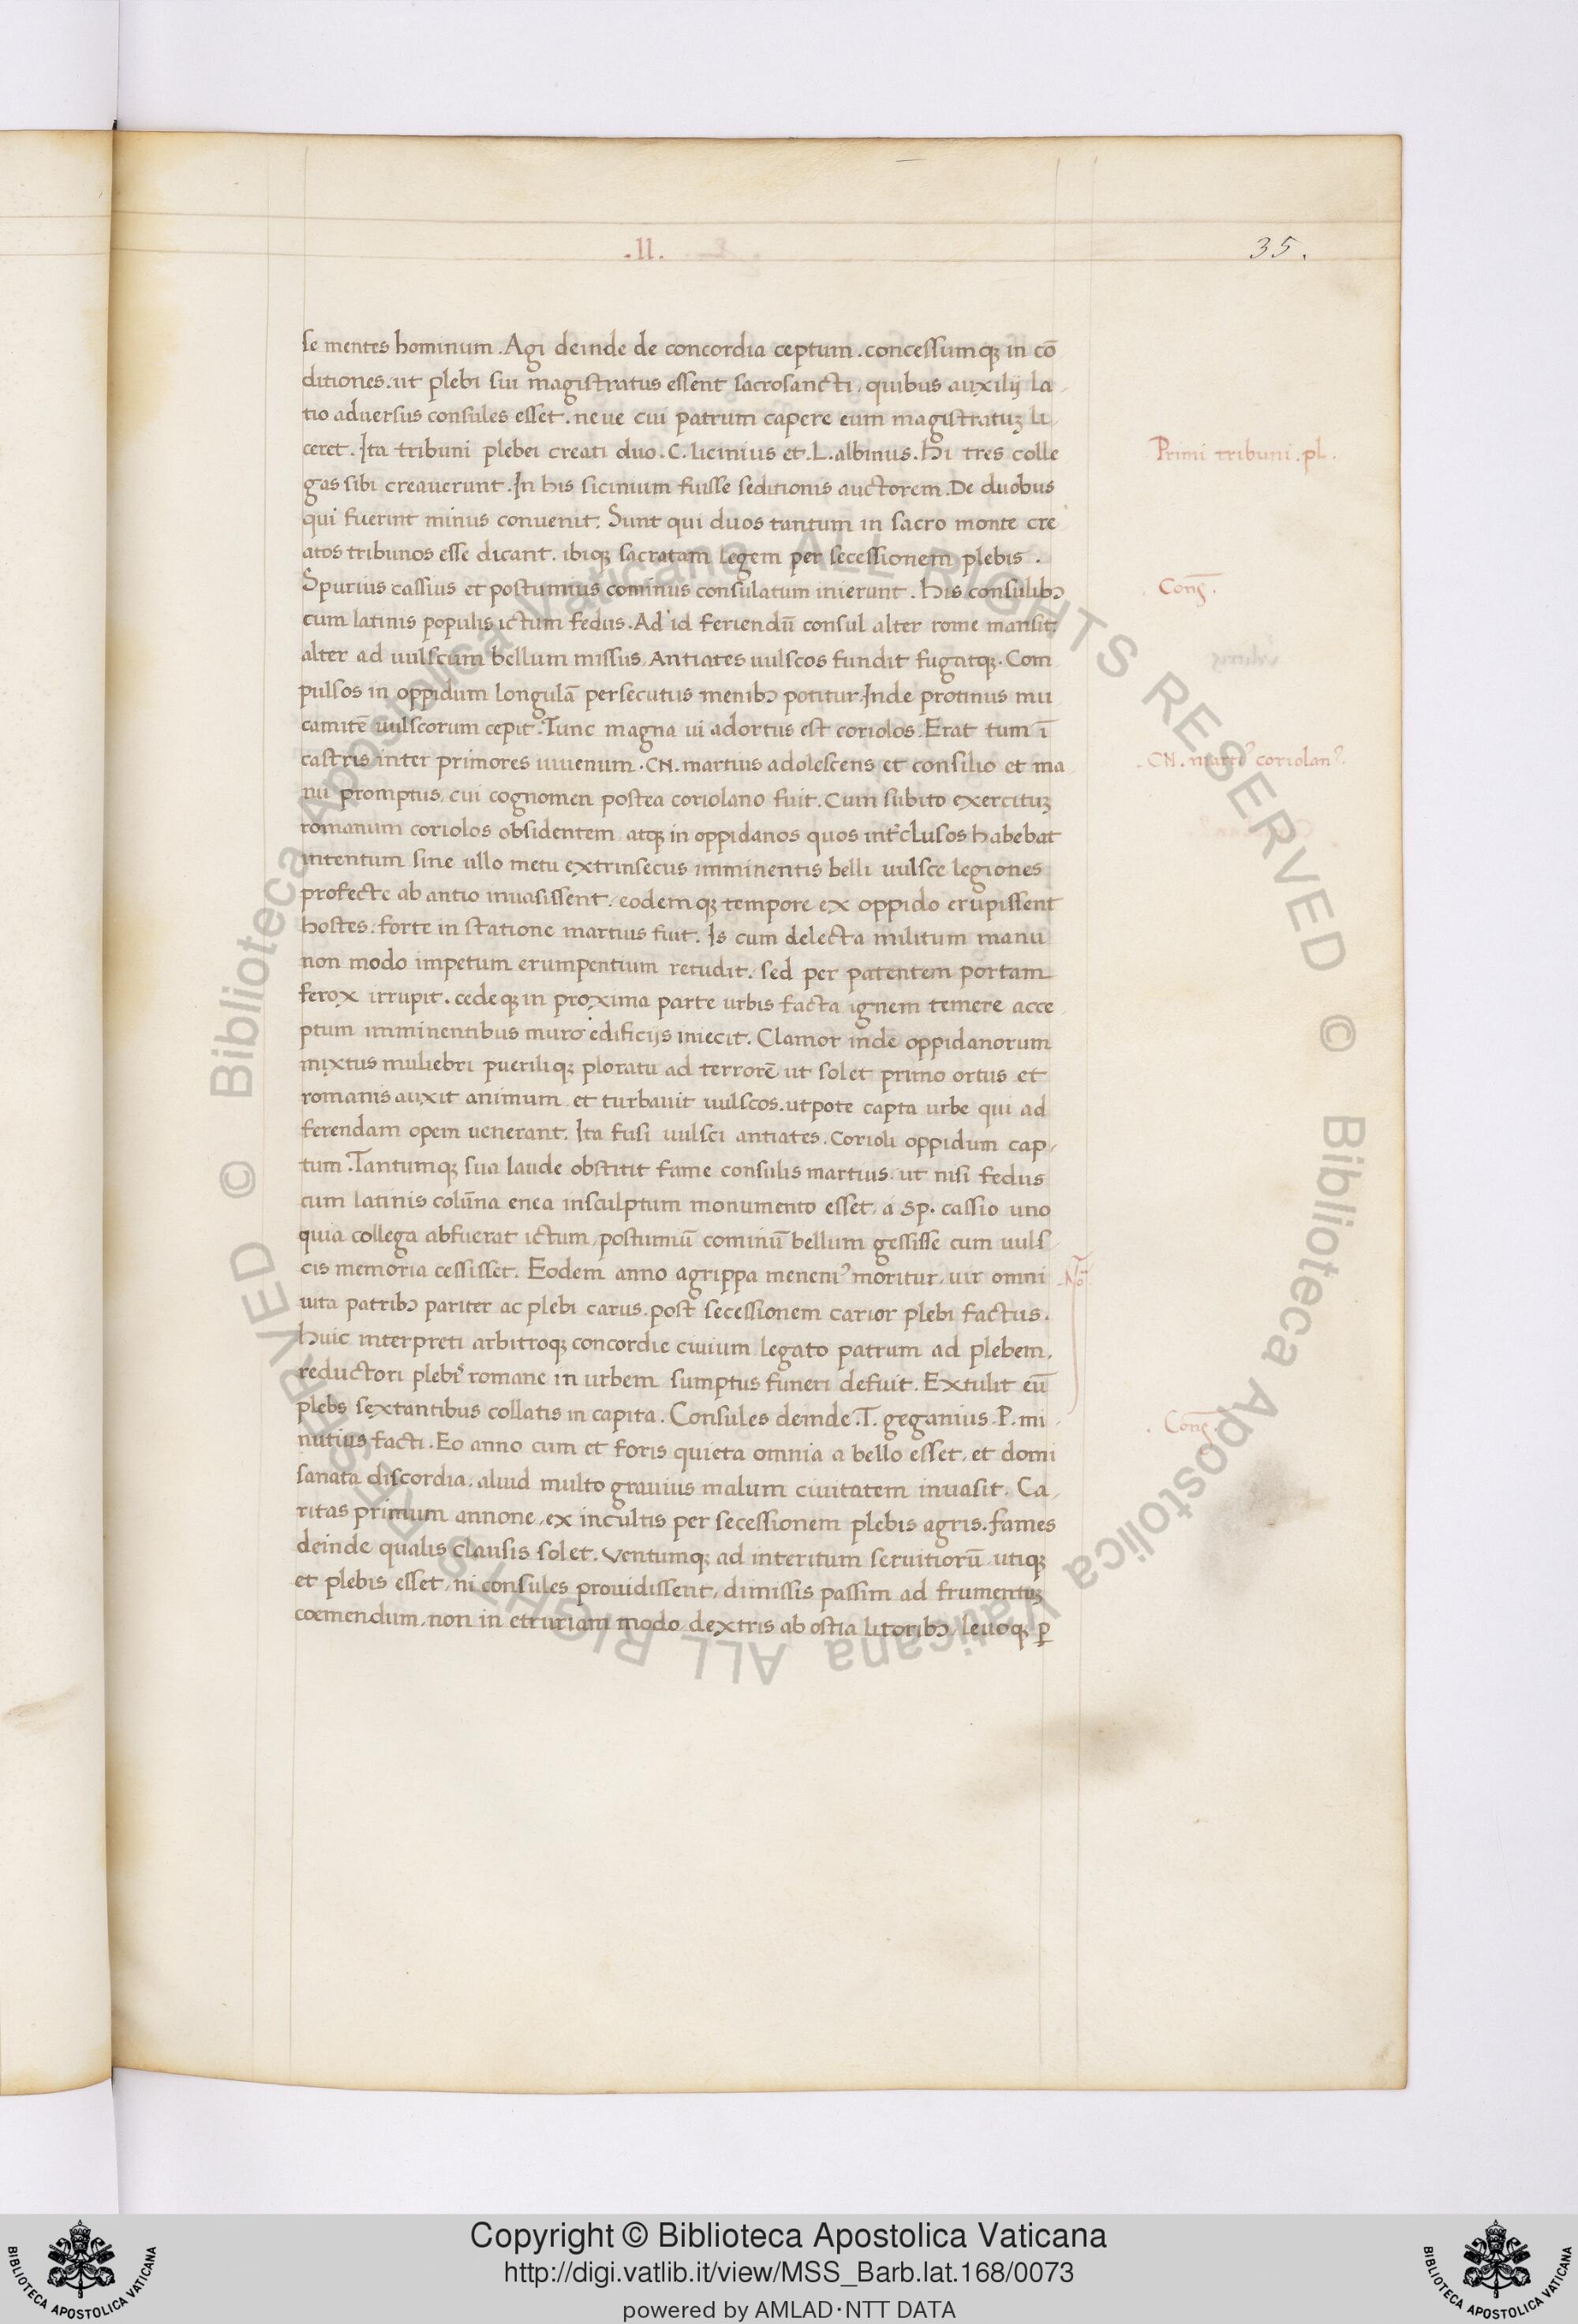 .II.
35.
se mentes hominum. Agi deinde de concordia ceptum. concessumqꝫ in cō
ditiones. ut plebi sui magistratus essent sacrosancti, quibus auxilij la
tio adversus consules esset. neve cui patrum capere eum magistratuꝫ li
ceret. Ita tribuni plebei creati duo. C. licinius et. L. albinus. hi tres colle
Primi tribuni. pl.
gas sibi creaverunt. In his sicinium fuisse seditionis auctorem. De duobus
qui fuerint minus convenit. Sunt qui duos tantum in sacro monte cre
atos tribunos esse dicant. ibiqꝫ sacratam legem per secessionem plebis.
Spurius cassius et postumius cominius consulatum inierunt. his consulibꝫ
Cons̄.
cum latinis populis ictum fedus. Ad id feriendū consul alter rome mansit.
alter ad uulscum bellum missus, Antiates uulscos fundit fugatqꝫ. Com
pulsos in oppidum longulā persecutus menibꝫ potitur. Inde protinus mu
camitē uulscorum cepit. Tunc magna ui adortus est coriolos. Erat tum ī
castris inter primores iuuenum. CN. martius adolescens et consilio et ma
CN. martiꝰ coriolanꝰ.
nu promptus, cui cognomen postea coriolano fuit. Cum subito exercituꝫ
romanum coriolos obsidentem atqꝫ in oppidanos quos int̄clusos habebat
intentum sine ullo metu extrinsecus imminentis belli uulsce legiones
profecte ab antio inuasissent. eodemqꝫ tempore ex oppido erupissent
hostes. forte in statione martius fuit. Is cum delecta militum manu
non modo impetum erumpentium retudit. sed per patentem portam
ferox irrupit. cedeqꝫ in proxima parte urbis facta ignem temere acce
ptum imminentibus muro edificijs iniecit. Clamor inde oppidanorum
mixtus muliebri puerilique ploratu ad terrorē ut solet primo ortus et
romanis auxit animum et turbauit uulscos. utpote capta urbe qui ad
ferendam opem uenerant. Ita fusi uulsci antiates. Corioli oppidum cap
tum. Tantumqꝫ sua laude obstitit fame consulis martius. ut nisi fedus
cum latinis colūna enea insculptum monumento esset, a Sp. cassio uno
quia collega abfuerat ictum, postumiū cominiū bellum gessisse cum uuls
cis memoria cessisset. Eodem anno agrippa meneniꝰ moritur, uir omni
Nō
uita patribꝫ pariter ac plebi carus. post secessionem carior plebi factus.
huic interpreti arbitroqꝫ concordie ciuium legato patrum ad plebem,
reductori plebis romane in urbem sumptus funeri defuit. Extulit eū
plebs sextantibus collatis in capita. Consules deinde. T. geganius. P. mi
Cons̄.
nutius facti. Eo anno cum et foris quieta omnia a bello esset, et domi
sanata discordia. aliud multo grauius malum ciuitatem inuasit. Ca
ritas primum annone, ex incultis per secessionem plebis agris. fames
deinde qualis clausis solet. Ventumqꝫ ad interitum seruitiorū utiqꝫ
et plebis esset, ni consules prouidissent, dimissis passim ad frumentuꝫ
coemendum, non in etruriam modo dextris ab ostia litoribꝫ, leuoqꝫ ꝑ
© Biblioteca Apostolica Vaticana ALL RIGHTS RESERVED © Biblioteca Apostolica Vaticana ALL RIGHTS RESERVED
BIBLIOTECA APOSTOLICA VATICANA
Copyright © Biblioteca Apostolica Vaticana
http://digi.vatlib.it/view/MSS_Barb.lat.168/0073
powered by AMLAD・NTT DATA
BIBLIOTECA APOSTOLICA VATICANA